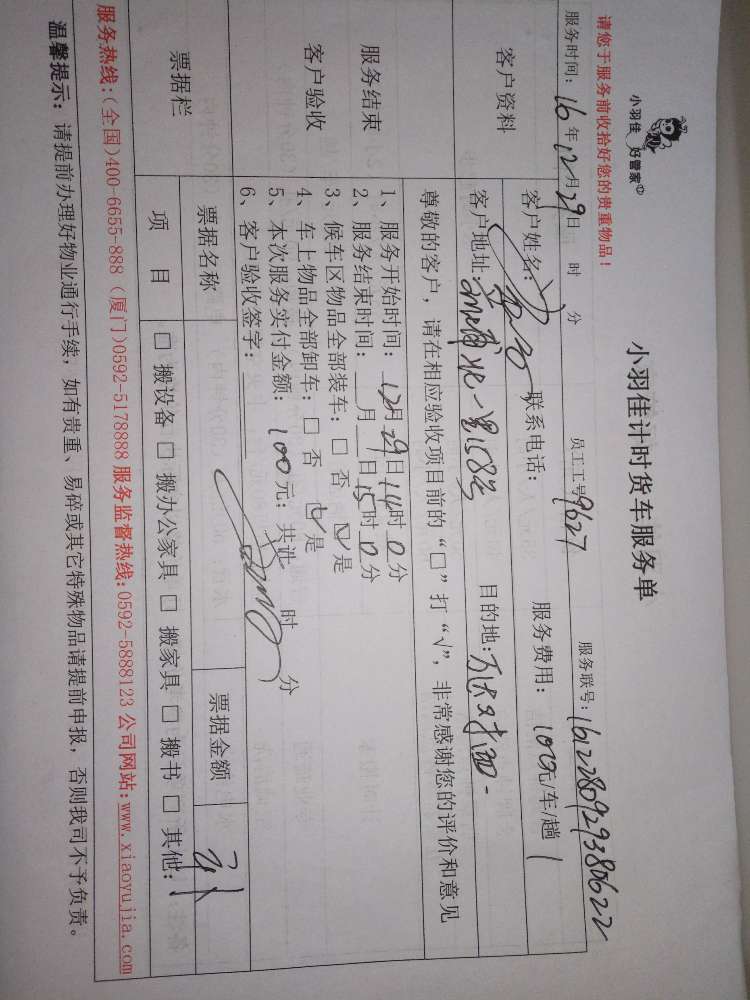 小羽佳 好管家
小羽佳计时货车服务单
请您于服务前收拾好您的贵重物品！
服务时间：16年12月29日 时 分 员工工号9627 服务联号：1612280929380622
客户资料
客户姓名： 联系电话： 服务费用：100元/车/趟
客户地址： 北一里158号 目的地：
服务结束
客户验收
尊敬的客户，请在相应验收项目前的“□”打“√”，非常感谢您的评价和意见
1、服务开始时间：12月29日14时0分
2、服务结束时间：__月__日15时0分
3、候车区物品全部装车：□ 否 ☑ 是
4、车上物品全部卸车：□ 否 ☑ 是
5、本次服务实付金额：100元；共计 时 分
6、客户验收签字：
票据栏
票据名称 票据金额
项 目 □ 搬设备 □ 搬办公家具 □ 搬家具 □ 搬书 □ 其他：
服务热线：(全国)400-6655-888 (厦门)0592-5178888 服务监督热线：0592-5888123 公司网站：www.xiaoyujia.com
温馨提示：请提前办理好物业通行手续，如有贵重、易碎或其它特殊物品请提前申报，否则我司不予负责。